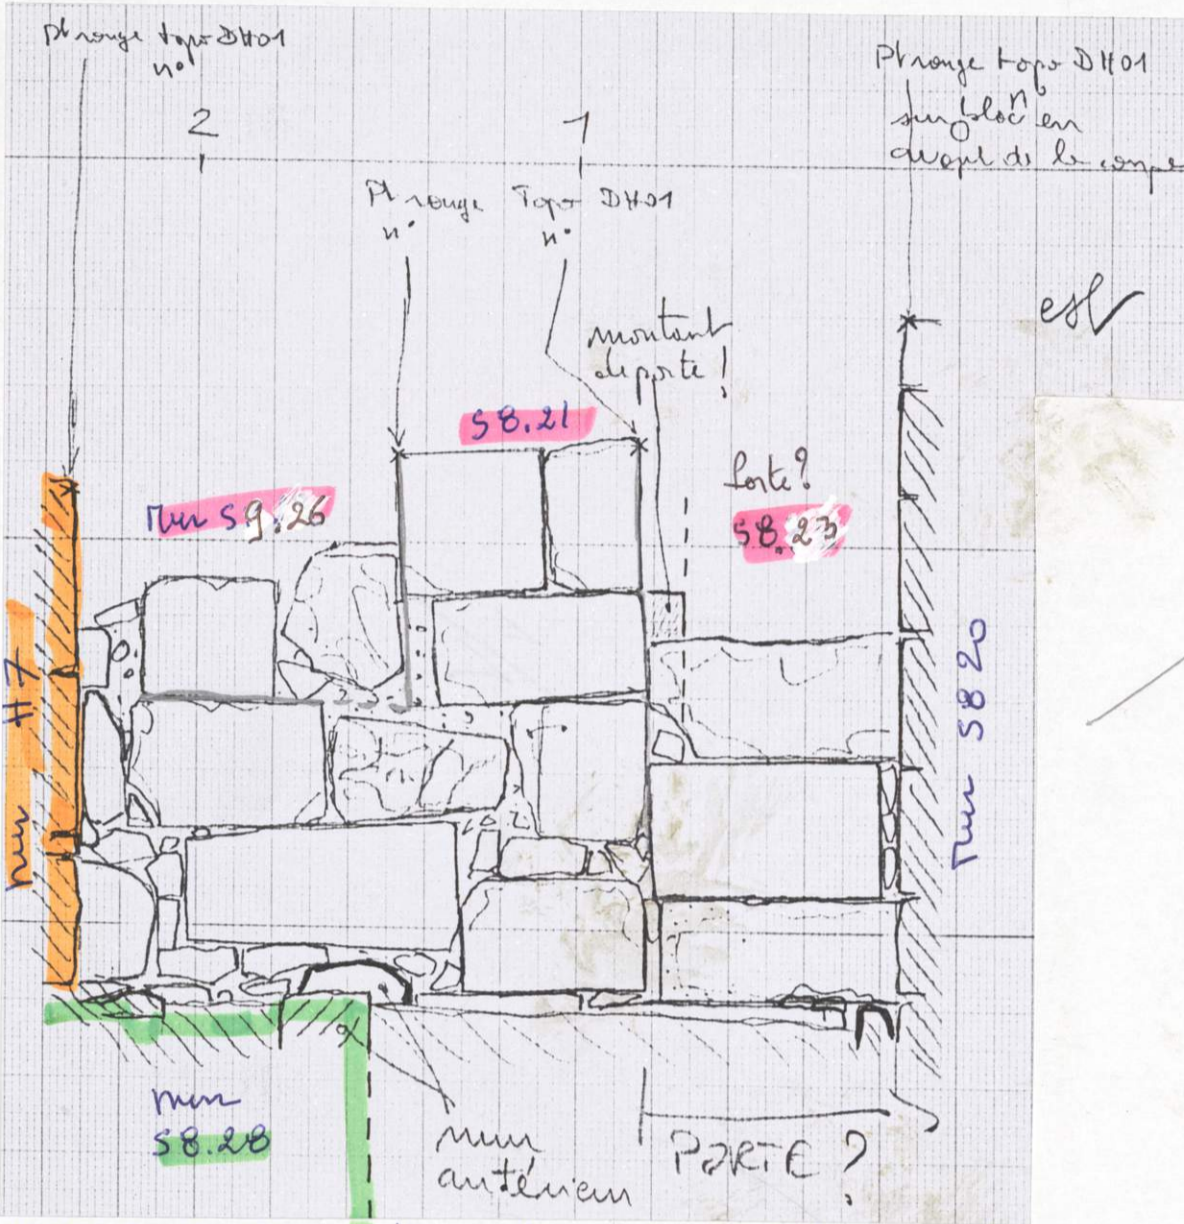 Pt rouge topo DH01
n°
Pt rouge topo DH01
n°
sur bloc en
avant de la coupe
2
1
Pt rouge Topo DH01
n° n°
est
montant
de porte !
S8.21
Porte ?
Mur S9.26
S8.23
mur H7
Mur S820
mur
S8.28
mur
antérieur
PORTE ?